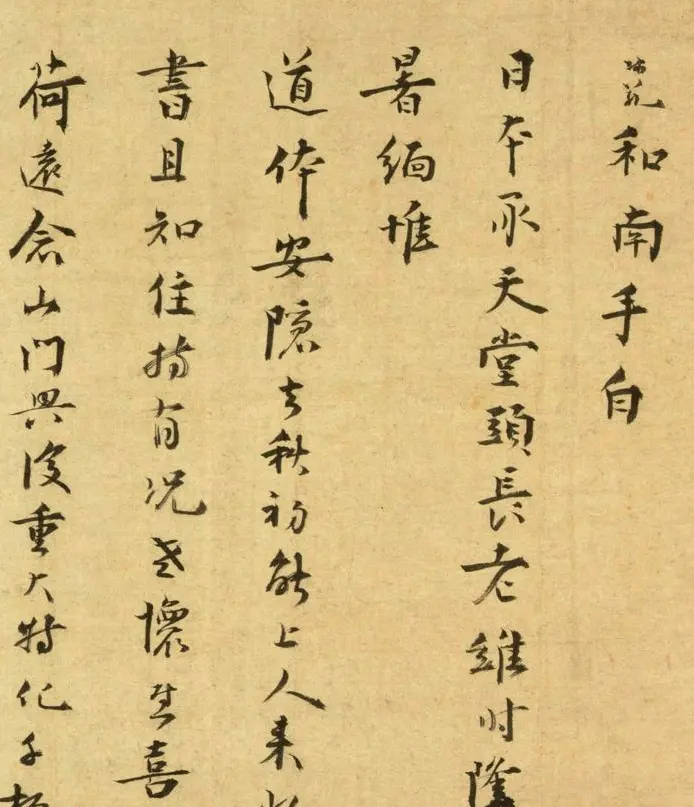 師範和南手白
日本承天堂頭長老維时隆
暑緬惟
道体安隱去秋初能上人来
書且知住持有况老懷喜
荷遠念山門興復重大特化千